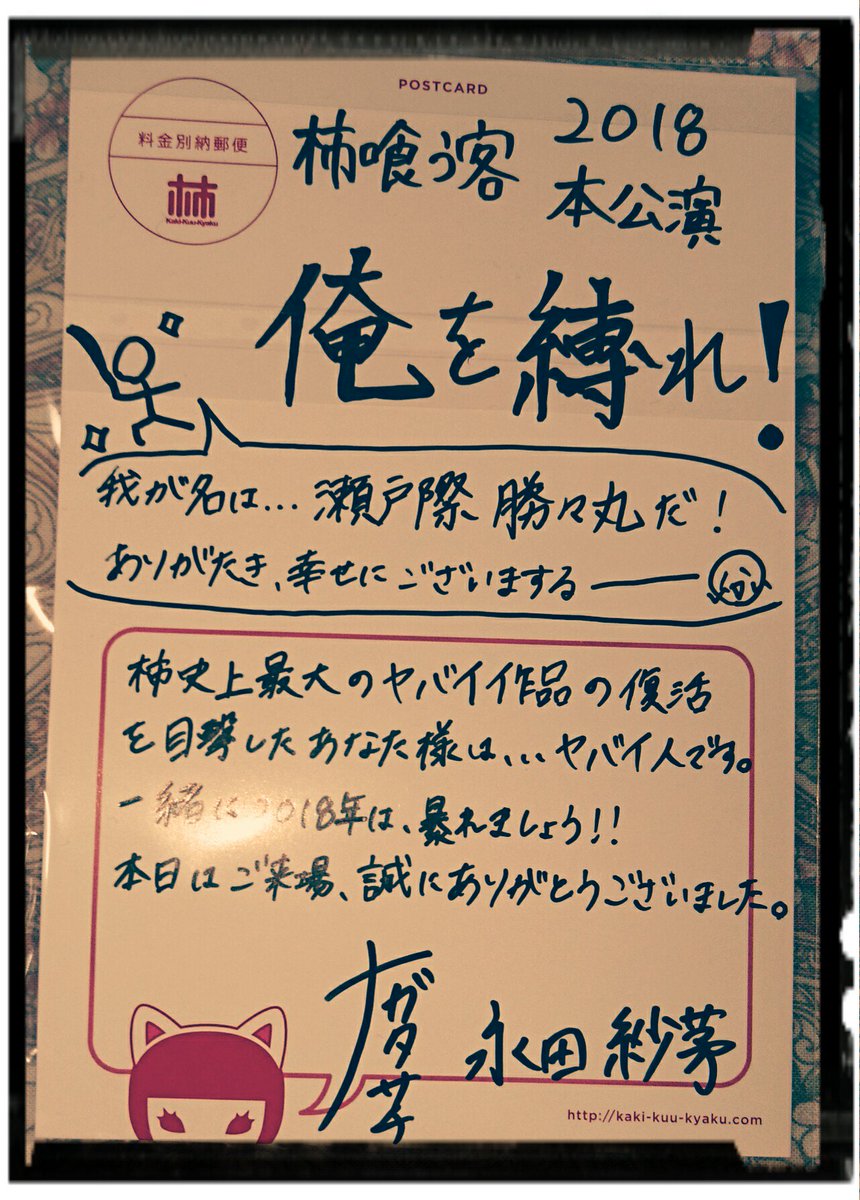 POSTCARD
料金別納郵便
柿
Kaki-Kuu-Kyaku
柿喰う客 2018
本公演
俺を縛れ!
我が名は…瀬戸際 勝々丸だ!
ありがたき、幸せにございまする――
柿史上最大のヤバイ作品の復活
を目撃したあなた様は、、、ヤバイ人です。
一緒に2018年は、暴れましょう!!
本日はご来場、誠にありがとうございました。
ナガタサチ
永田紗茅
http://kaki-kuu-kyaku.com